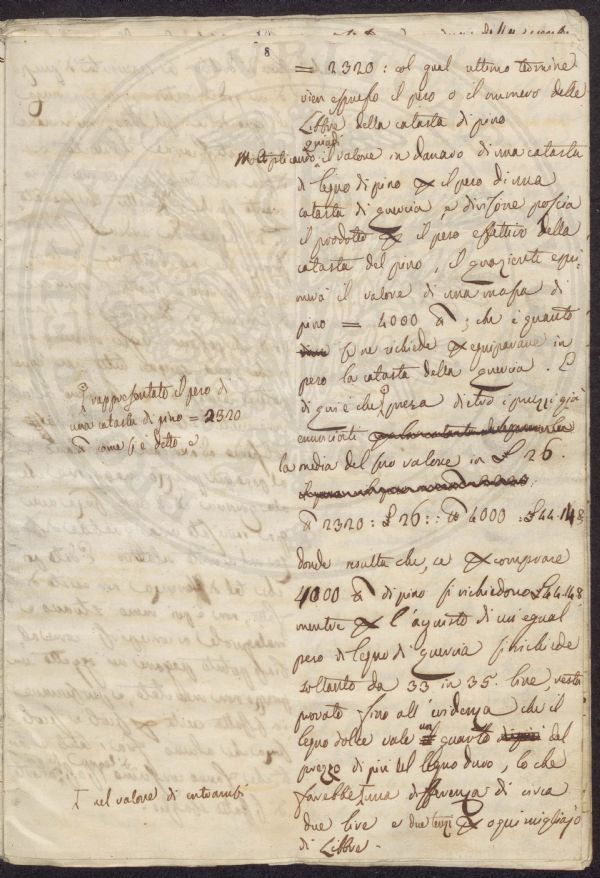 8
= 2320: col qual ultimo termine
vien espresso il peso o il numero delle
Libbre della catasta di pino
quindi
Moltiplicando il valore in danaro di una catasta
di legno di pino per il peso di una
catasta di quercia, e divisone poscia
il prodotto per il peso effettivo della
catasta del pino, il quoziente espri-
merà il valore di una massa di
pino = 4000 ; che è quanto
si ne richiede per equiparare in
peso la catasta della quercia. E
di qui è che presa dietro i prezzi già
enunciati
la media del suo valore in £ 26.
2320: £ 26:: 4000: £ 44.148
donde risulta che, se per comprare
4000 di pino si richiedono £ 44.148
mentre per l'aquisto di un egual
peso di legno di quercia si richiede
soltanto da 33 in 35. lire, resta
provato fino all'evidenza che il
legno dolce vale un quarto del
prezzo di più del legno duro, lo che
farebbe una differenza di circa
due lire e due terzi per ogni migliajo
di Libbre.
rappresentato il peso di
una catasta di pino = 2320
come si è detto, e
I nel valore di entrambi